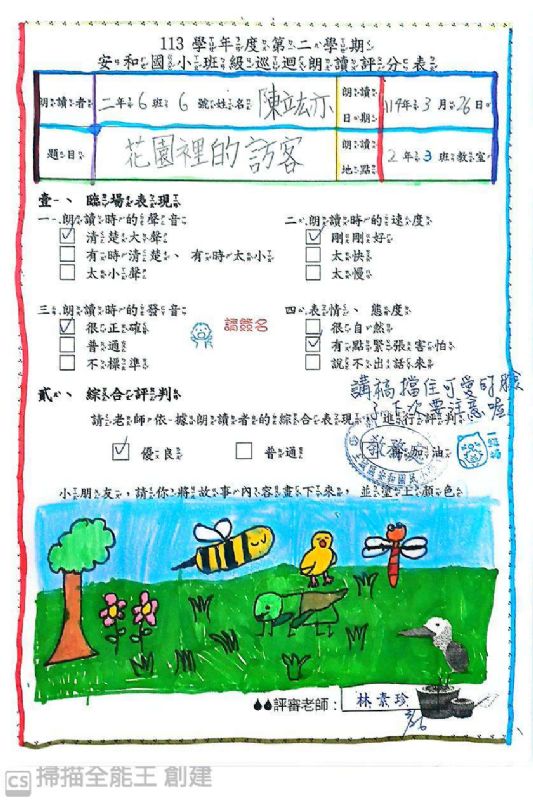 113學年度第二學期
安和國小班級巡迴朗讀評分表
朗讀者 二年6班6號姓名 陳竑亦 朗讀日期 114年3月26日
題目 花園裡的訪客 朗讀地點 2年3班教室
壹、臨場表現
一、朗讀時的聲音 二、朗讀時的速度
清楚大聲 剛剛好
有時清楚、有時太小 太快
太小聲 太慢
三、朗讀時的發音 四、表情、態度
很正確 請簽名 很自然
普通 有點緊張害怕
不標準 說不出話來
講稿擋住可愛的臉
了下次要注意
貳、綜合評判
請老師依據朗讀者的綜合表現,進行評判
優良 普通 加油
教務處
小朋友,請你將故事內容畫下來,並塗上顏色
評審老師: 林素珍
3/26
CS 掃描全能王 創建